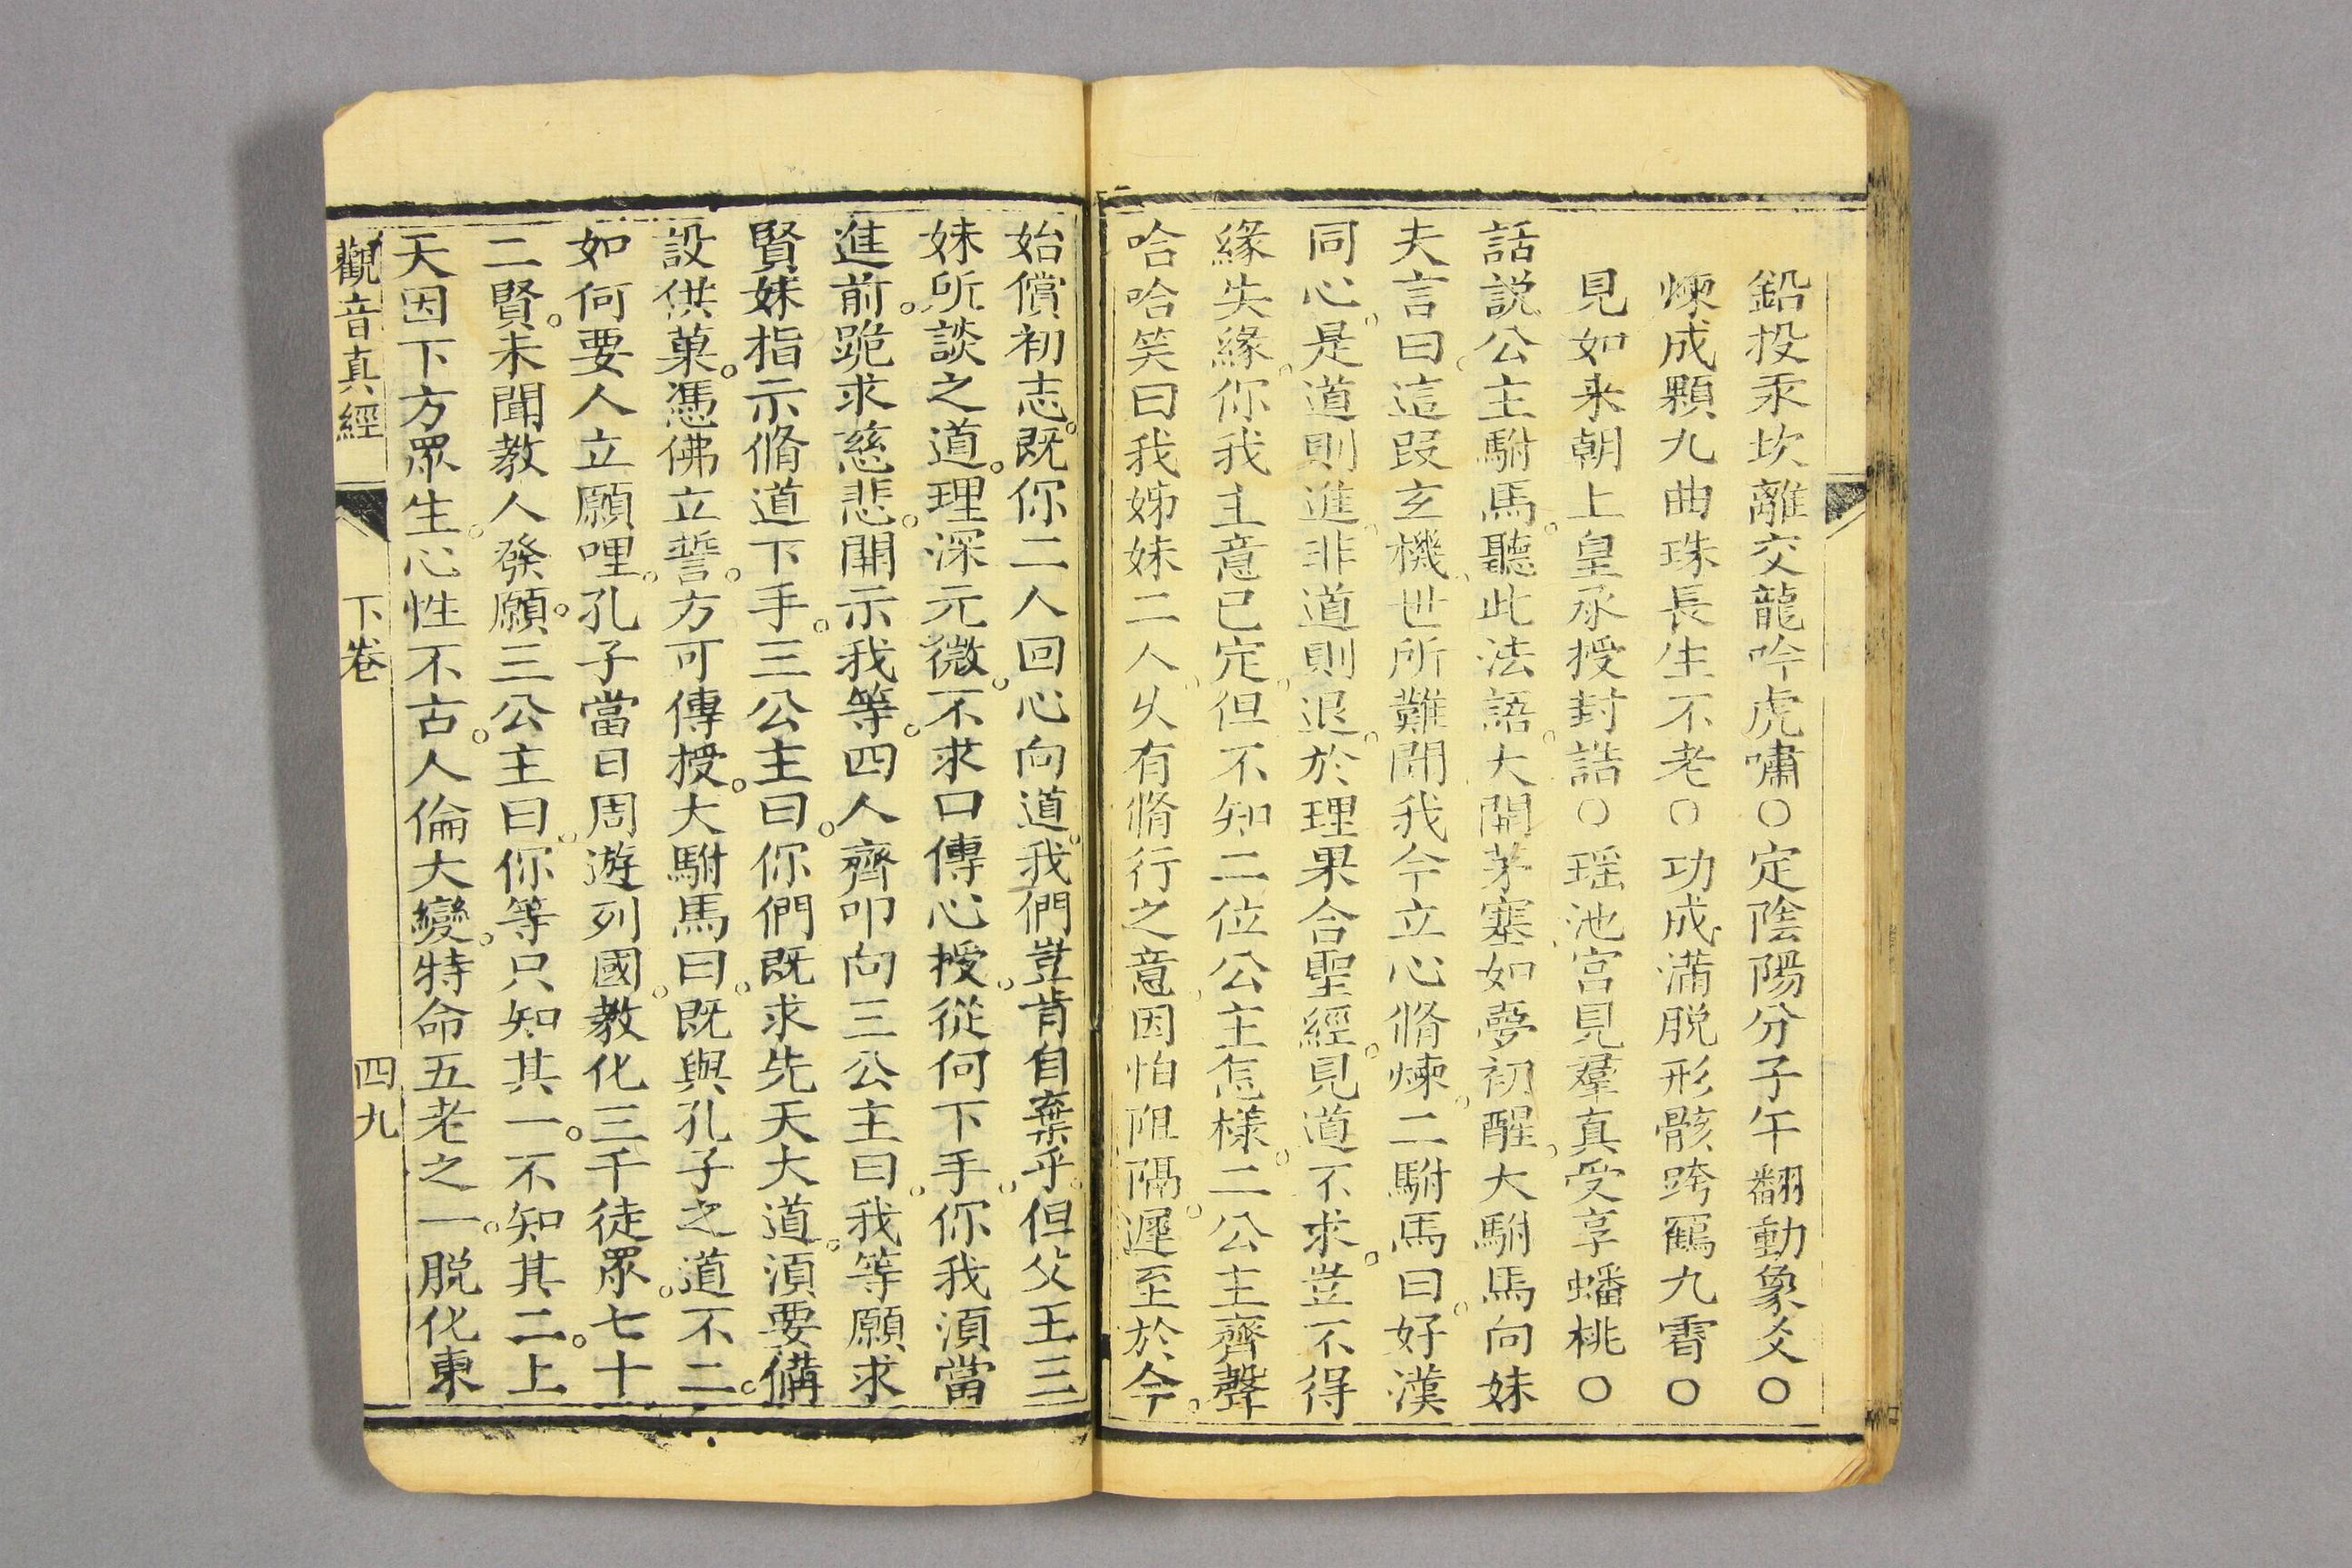 鉛投汞坎離交龍吟虎嘯○定陰陽分子午翻動象爻○
煉成顆九曲珠長生不老○功成滿脱形骸跨鶴九霄○
見如来朝上皇承授封誥○瑶池宮見羣真受享蟠桃○
話説公主駙馬。聽此法語。大開茅塞。如夢初醒。大駙馬向妹
夫言曰。這段玄機。世所難聞我今立心脩煉。二駙馬曰。好漢
同心。是道則進。非道則退。於理果合聖經。見道不求。豈不得
緣失緣。你我主意已定。但不知二位公主怎様。二公主齊聲
哈哈笑曰我姊妹二人。乆有脩行之意。因怕阻隔。遲至於今。
始償初志。既你二人回心向道。我們豈肯自棄乎。但父王三
妹所談之道。理深元微。不求口傳心授。從何下手。你我須當
進前。跪求慈悲。開示我等。四人齊叩向三公主曰。我等願求
賢妹指示脩道下手。三公主曰。你們既求先天大道。須要備
設供菓。憑佛立誓。方可傳授。大駙馬曰。既與孔子之道不二。
如何要人立願哩。孔子當日周遊列國。教化三千徒眾。七十
二賢。未聞教人發願。三公主曰。你等只知其一。不知其二。上
天因下方眾生。心性不古。人倫大變。特命五老之一。脱化東
觀音真經 下卷 四九